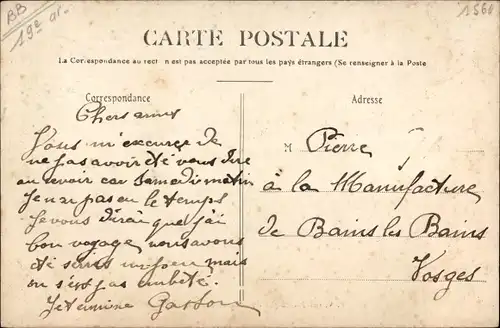 BB
19e ar.
1560
CARTE POSTALE
La Correspondance au recto n'est pas acceptée par tous les pays étrangers (Se renseigner à la Poste
Correspondance
Adresse
Chers amis
Vous m'excuserez de
ne pas avoir été vous dire
au revoir car Samedi matin
Je n'ai pas eu le temps
Je vous dirai que j'ai
bon voyage, nous avons
été un peu mais
on s'est pas embêté.
Je termine Gaston
M Pierre
à la Manufacture
de Bains les Bains
Vosges